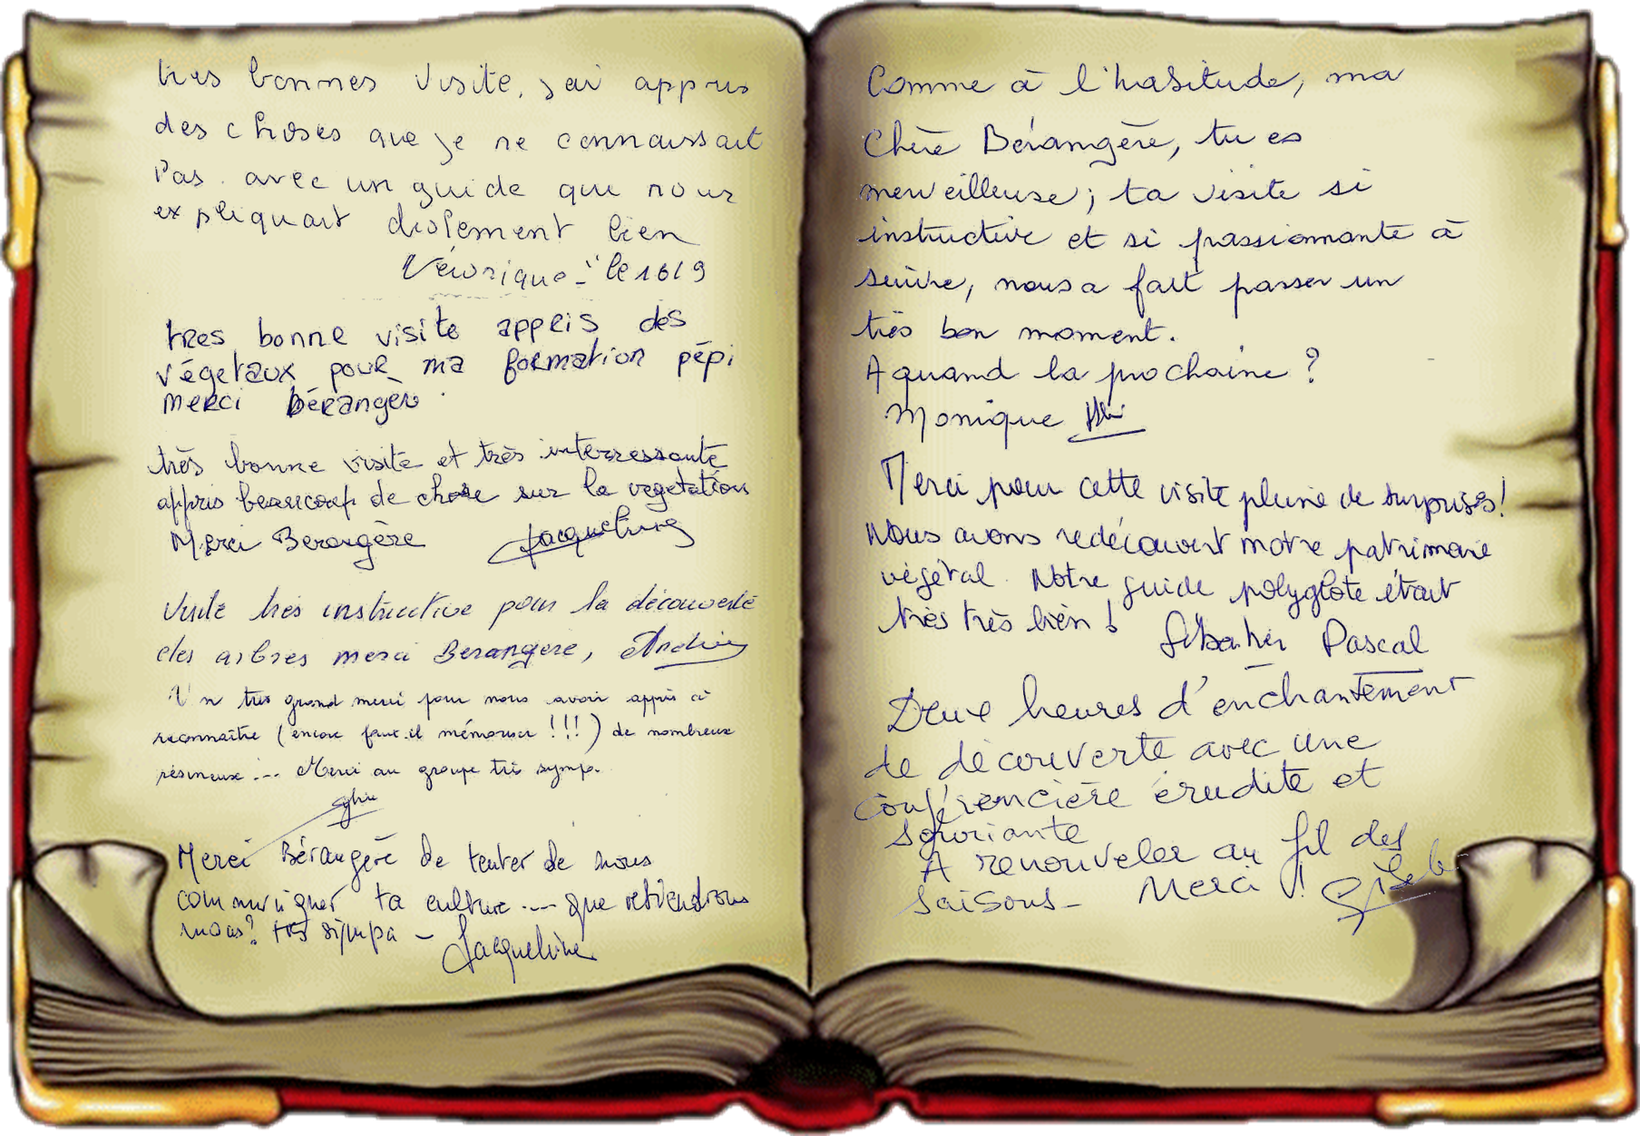 tres bonnes visite, j'ai appris
des choses que je ne connaissait
Pas. avec un guide que nous
expliquait drolement bien
Véronique - le 16/9
tres bonne visite appris des
végetaux pour ma formation pépi
merci bérangèr
très bonne visite et très interressante
appris beaucoup de chose sur la vegetation
Merci Berangère Jacqueline
Visite très instructive pour la découverte
des arbres merci Berangere,
Un très grand merci pour nous avoir appris à
reconnaître (encore faut-il mémoriser !!!) de nombreux
résineux... Merci au groupe très sympa.
Merci Bérangère de tenter de nous
communiquer ta culture ... que retiendrons
nous? très sympa - Jacqueline
Comme à l'habitude, ma
Chère Bérangère, tu es
merveilleuse; ta visite si
instructive et si passionnante à
suivre, nous a fait passer un
très bon moment.
A quand la prochaine ?
Monique
Merci pour cette visite pleine de surprises!
Nous avons redécouvert notre patrimoine
végétal. Notre guide polyglote était
très très bien! Pascal
Deux heures d'enchantement
de découverte avec une
conférencière érudite et
souriante
A renouveler au fil des
saisons - Merci !